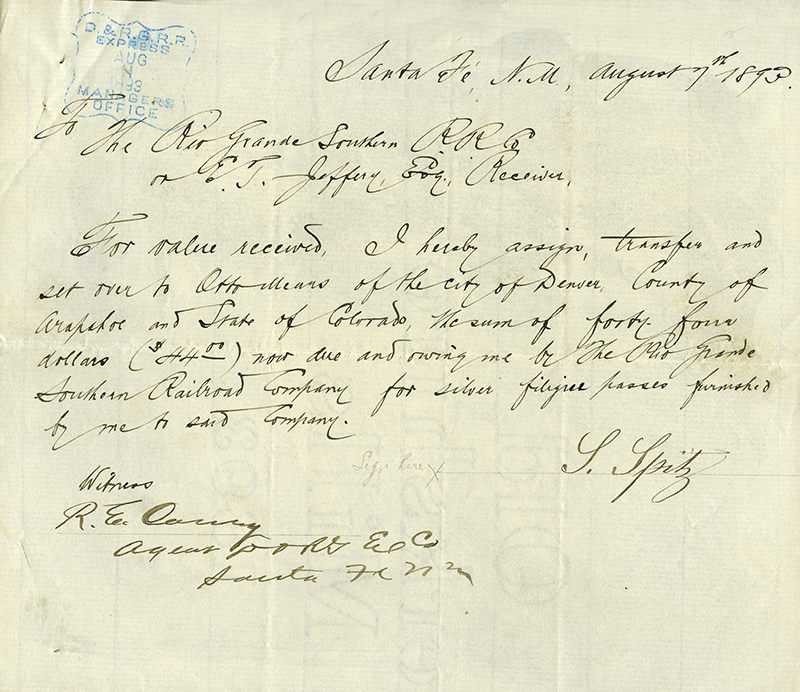 D. & R. G. R. R.
EXPRESS
AUG
93
MANAGERS
OFFICE
Santa Fé, N.M., August 7th 1893.
To The Rio Grande Southern R.R. Co
or E. T. Jeffery, Esq., Receiver,
For value received, I hereby assign, transfer and
set over to Otto Mears of the city of Denver, County of
Arapahoe and State of Colorado, the sum of forty-four
dollars ($44 00) now due and owing me by The Rio Grande
Southern Railroad Company for silver filigree passes furnished
by me to said Company.
Sign here X
S. Spitz
Witness
R. E.
Agent Co
Santa Fe N M